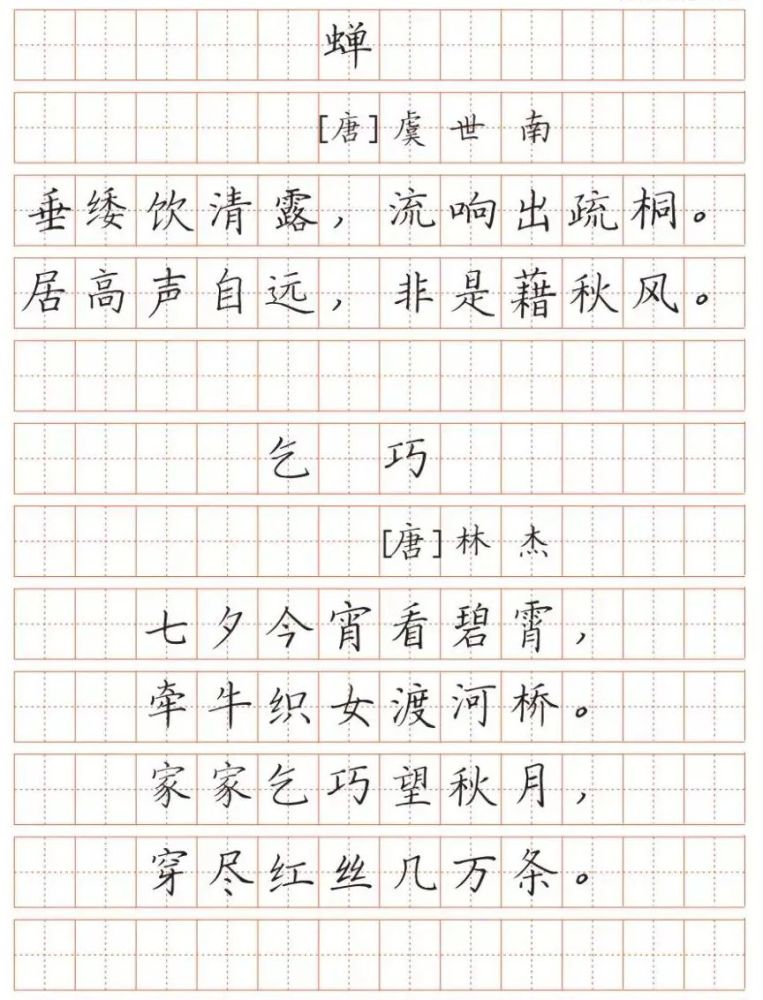 蝉
[唐]虞世南
垂緌饮清露，流响出疏桐。
居高声自远，非是藉秋风。
乞巧
[唐]林杰
七夕今宵看碧霄，
牵牛织女渡河桥。
家家乞巧望秋月，
穿尽红丝几万条。